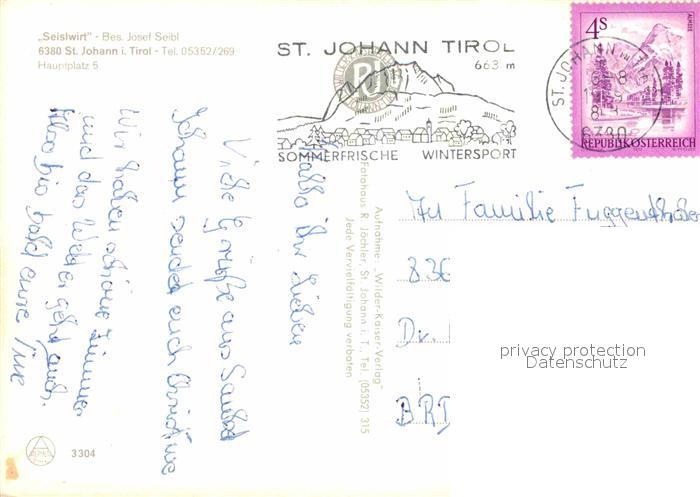 „Seislwirt" - Bes. Josef Seibl
6380 St. Johann i. Tirol - Tel. 05352/269
Hauptplatz 5
ST. JOHANN TIROL
663 m
SOMMERFRISCHE WINTERSPORT
ST. JOHANN
6380
4s
ALMSEE
REPUBLIK ÖSTERREICH
Hallo ihr Lieben
Viele Grüße aus Sankt
Johann sendet euch Christine
Wir haben schöne Zimmer
und das Wetter geht auch.
Also bis bald eure Tine
Aufnahme: „Wilder-Kaiser-Verlag"
Fotohaus R. Jöchler, St. Johann i. T., Tel. (05352) 315
Jede Vervielfältigung verboten
An Familie
836
Dr.
BRD
privacy protection
Datenschutz
3304